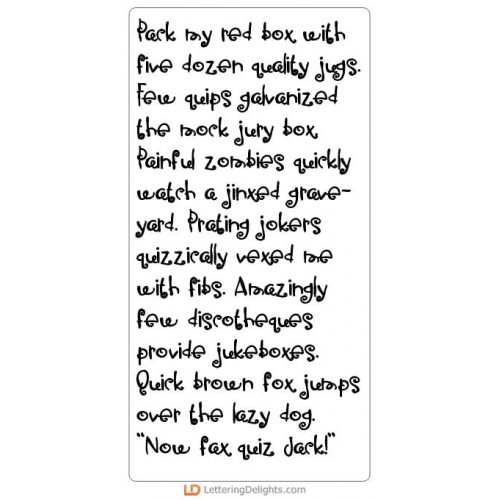 Pack my red box with
five dozen quality jugs.
Few quips galvanized
the mock jury box.
Painful zombies quickly
watch a jinxed grave-
yard. Prating jokers
quizzically vexed me
with fibs. Amazingly
few discotheques
provide jukeboxes.
Quick brown fox jumps
over the lazy dog.
"Now fax quiz Jack!"
LD LetteringDelights.com